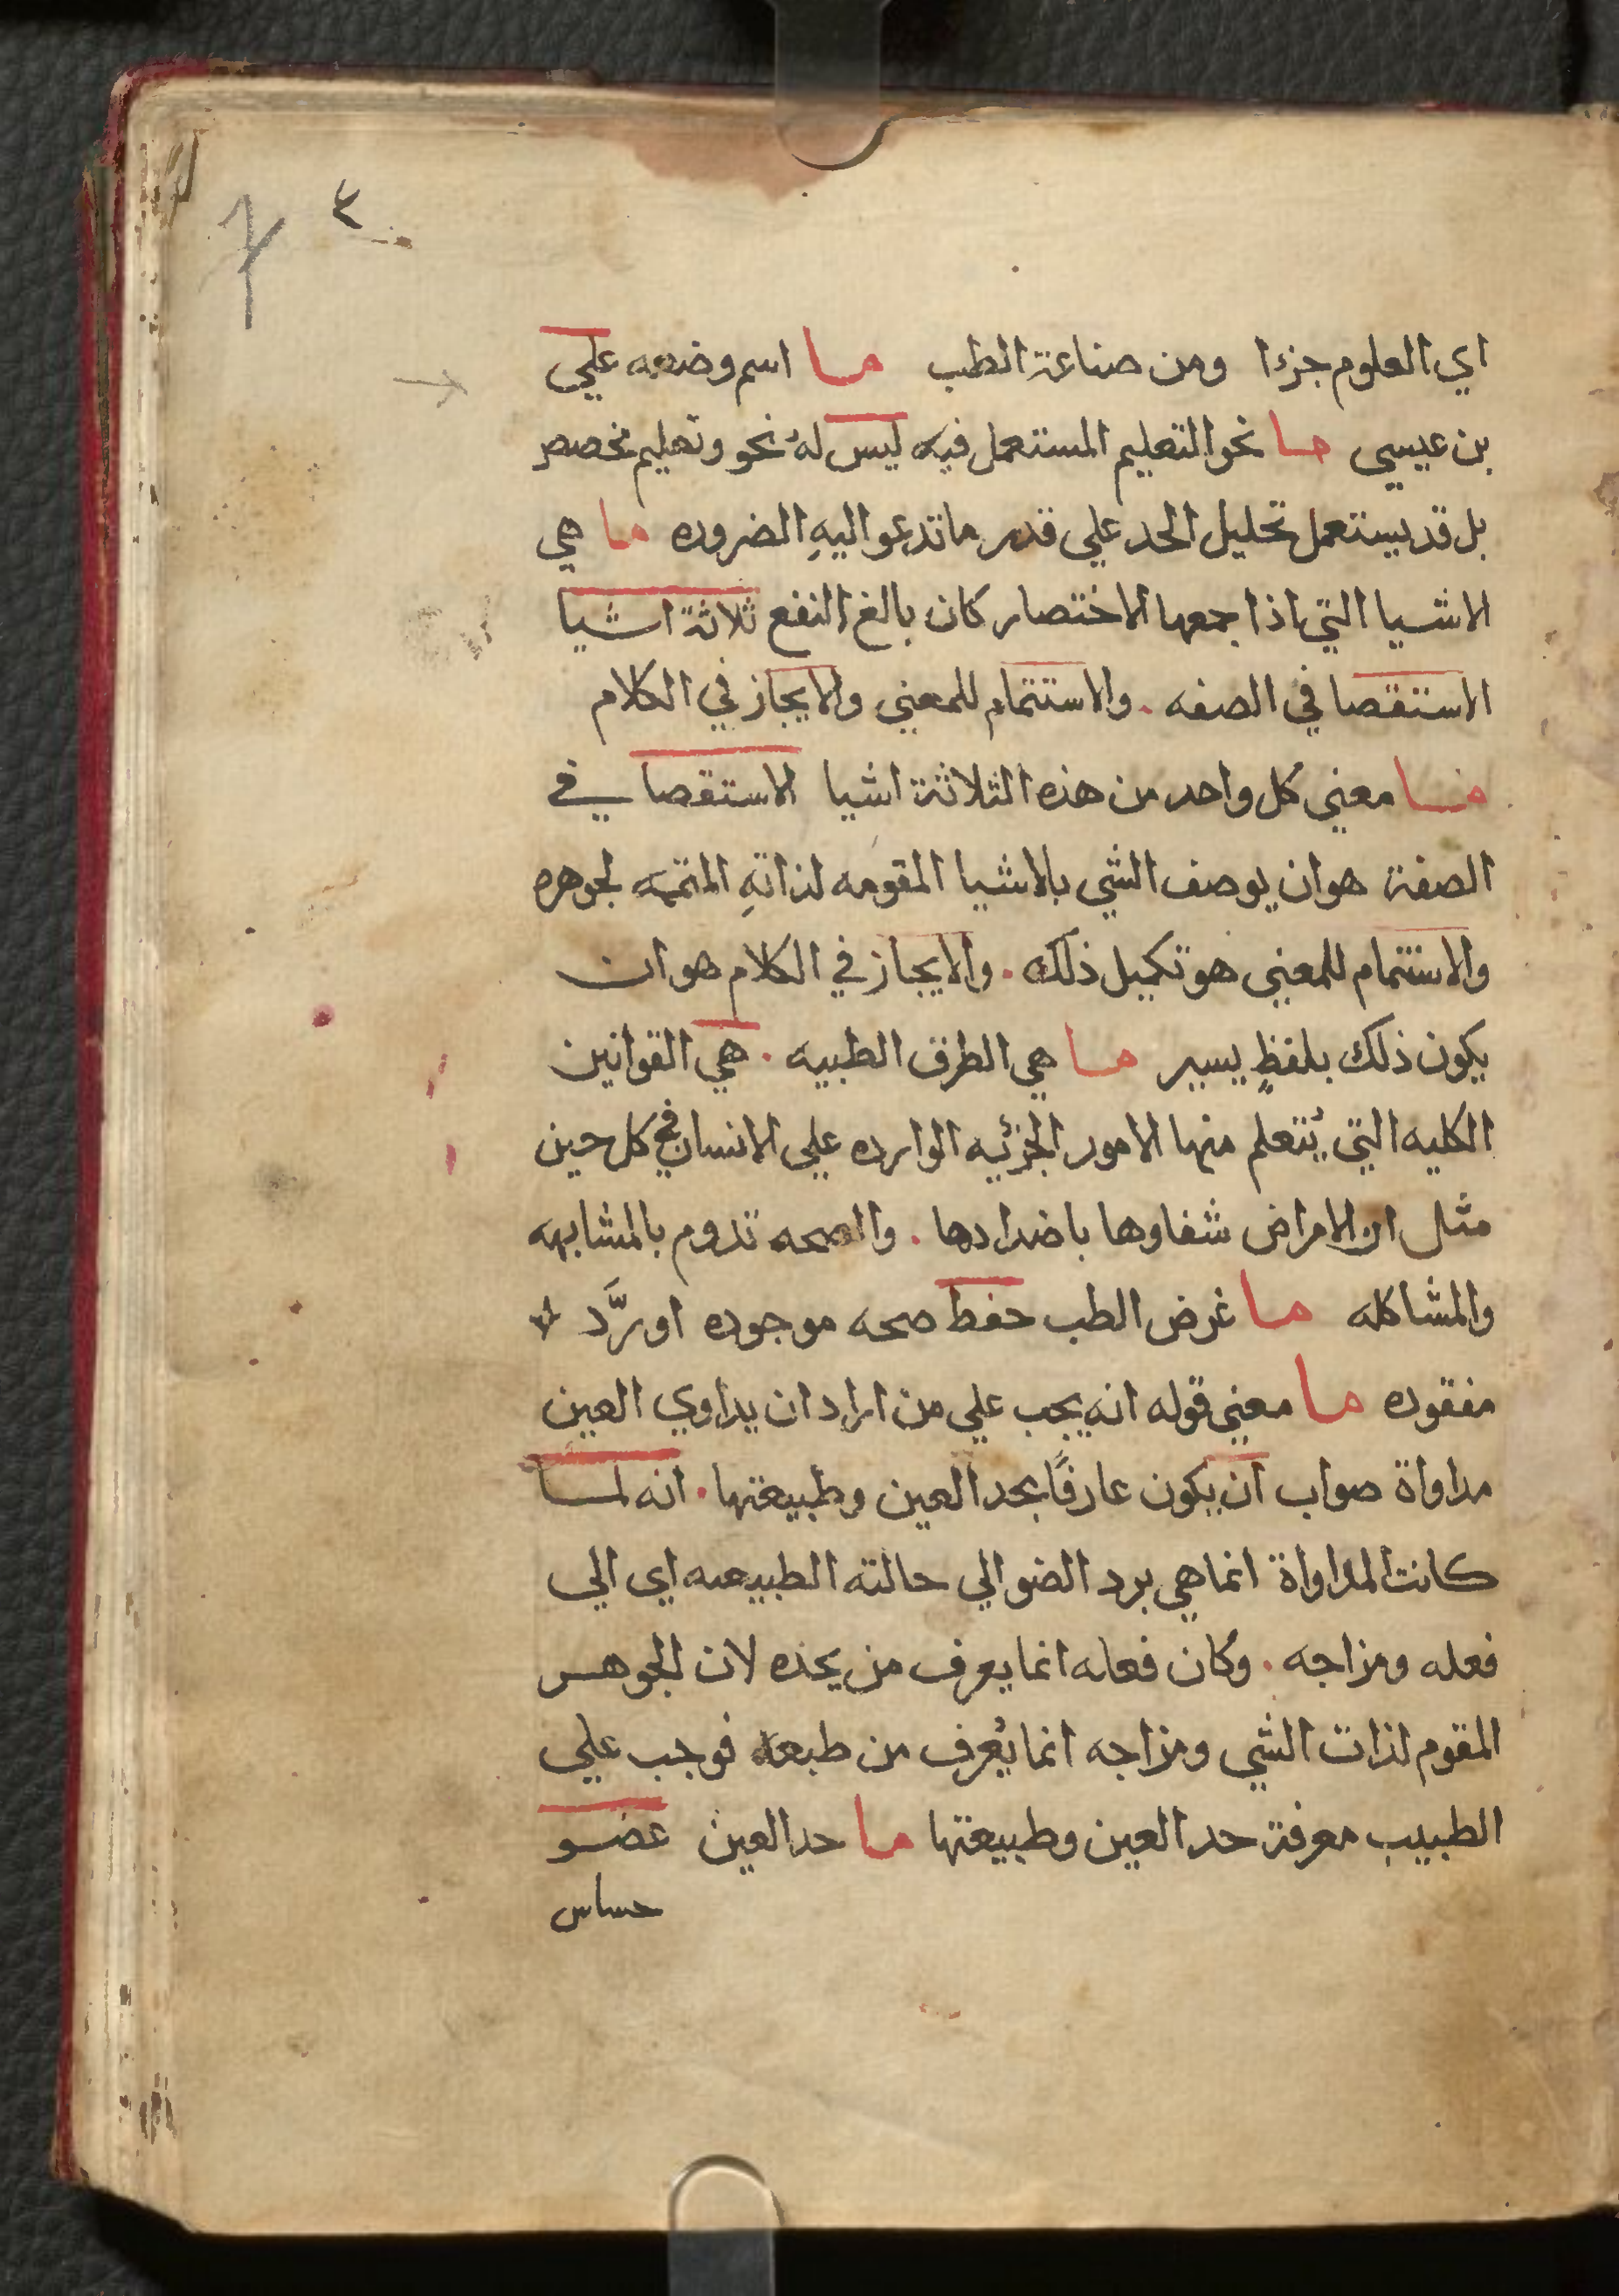 ٣
اي العلوم جزءا ومن صناعة الطب ما اسم وضعه علي
بن عيسي ما نحو التعليم المستعمل فيه ليس له نحو وتعليم مخصص
بل قد يستعمل تحليل الحد علي قدر ما تدعوا اليهِ الضروره ما هي
الاشيا التي اذا جمعها الاختصار كان بالغ النفع ثلاثة اشيا
الاستقصا في الصفه . والاستتمام للمعني والايجاز في الكلام
فما معني كل واحد من هذه الثلاثة اشيا الاستقصا في
الصفة هو ان يوصف الشي بالاشيا المقومه لذاتهِ المتممه لجوهره
والاستتمام للمعني هو تكميل ذلك . والايجاز في الكلام هو ان
يكون ذلك بلفظٍ يسير ما هي الطرق الطبيه . هي القوانين
الكليه التي يُتعلم منها الامور الجزئيه الوارده علي الانسان في كل حين
مثل ان الامراض شفاوها باضدادها . والصحه تدوم بالمشابهه
والمشاكله ما غرض الطب حفظ صحه موجوده او رَّد
مفقوده ما معني قوله انه يجب علي من اراد ان يداوي العين
مداواة صواب ان يكون عارفًا بحد العين وطبيعتها . انه لما
كانت المداواة انما هي برد الضو الي حالته الطبيعيه اي الي
فعله ومزاجه . وكان فعله انما يعرف من يحده لان الجوهر
المقوم لذات الشي ومزاجه انما يُعرف من طبعه فوجب علي
الطبيب معرفة حد العين وطبيعتها ما حد العين عضو
حساس